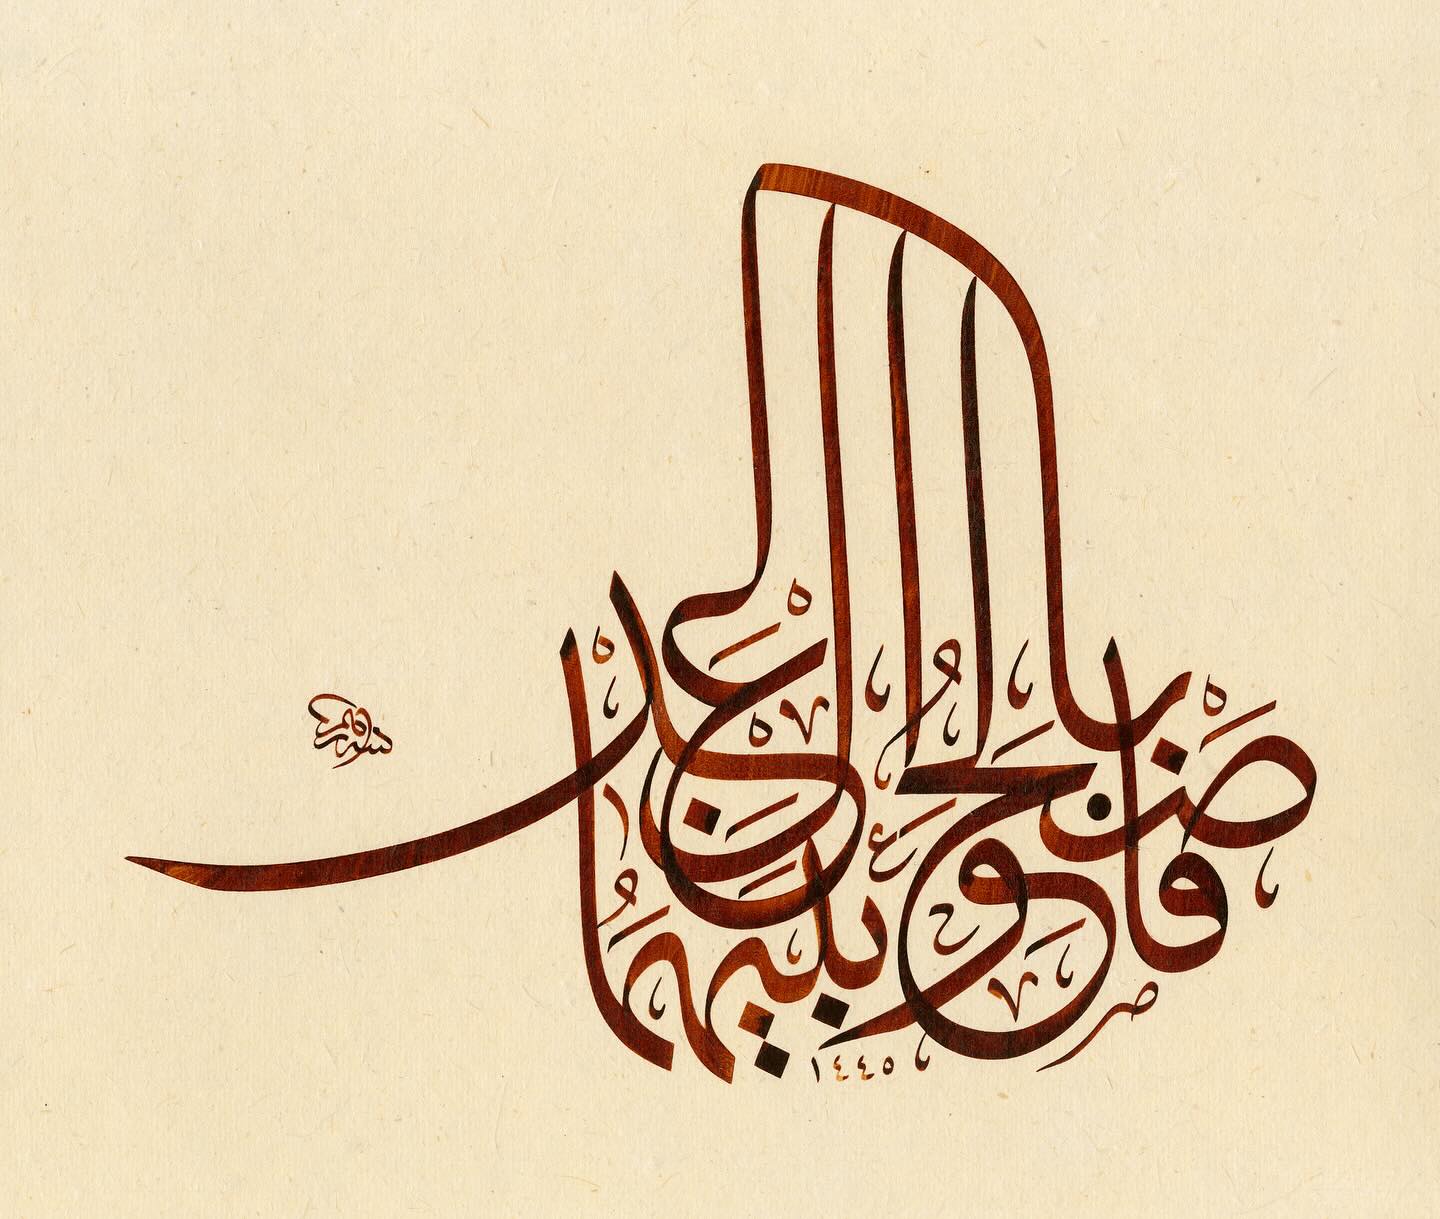 فَأَصْلِحُوا بَيْنَهُمَا بِالْعَدْلِ
١٤٤٥